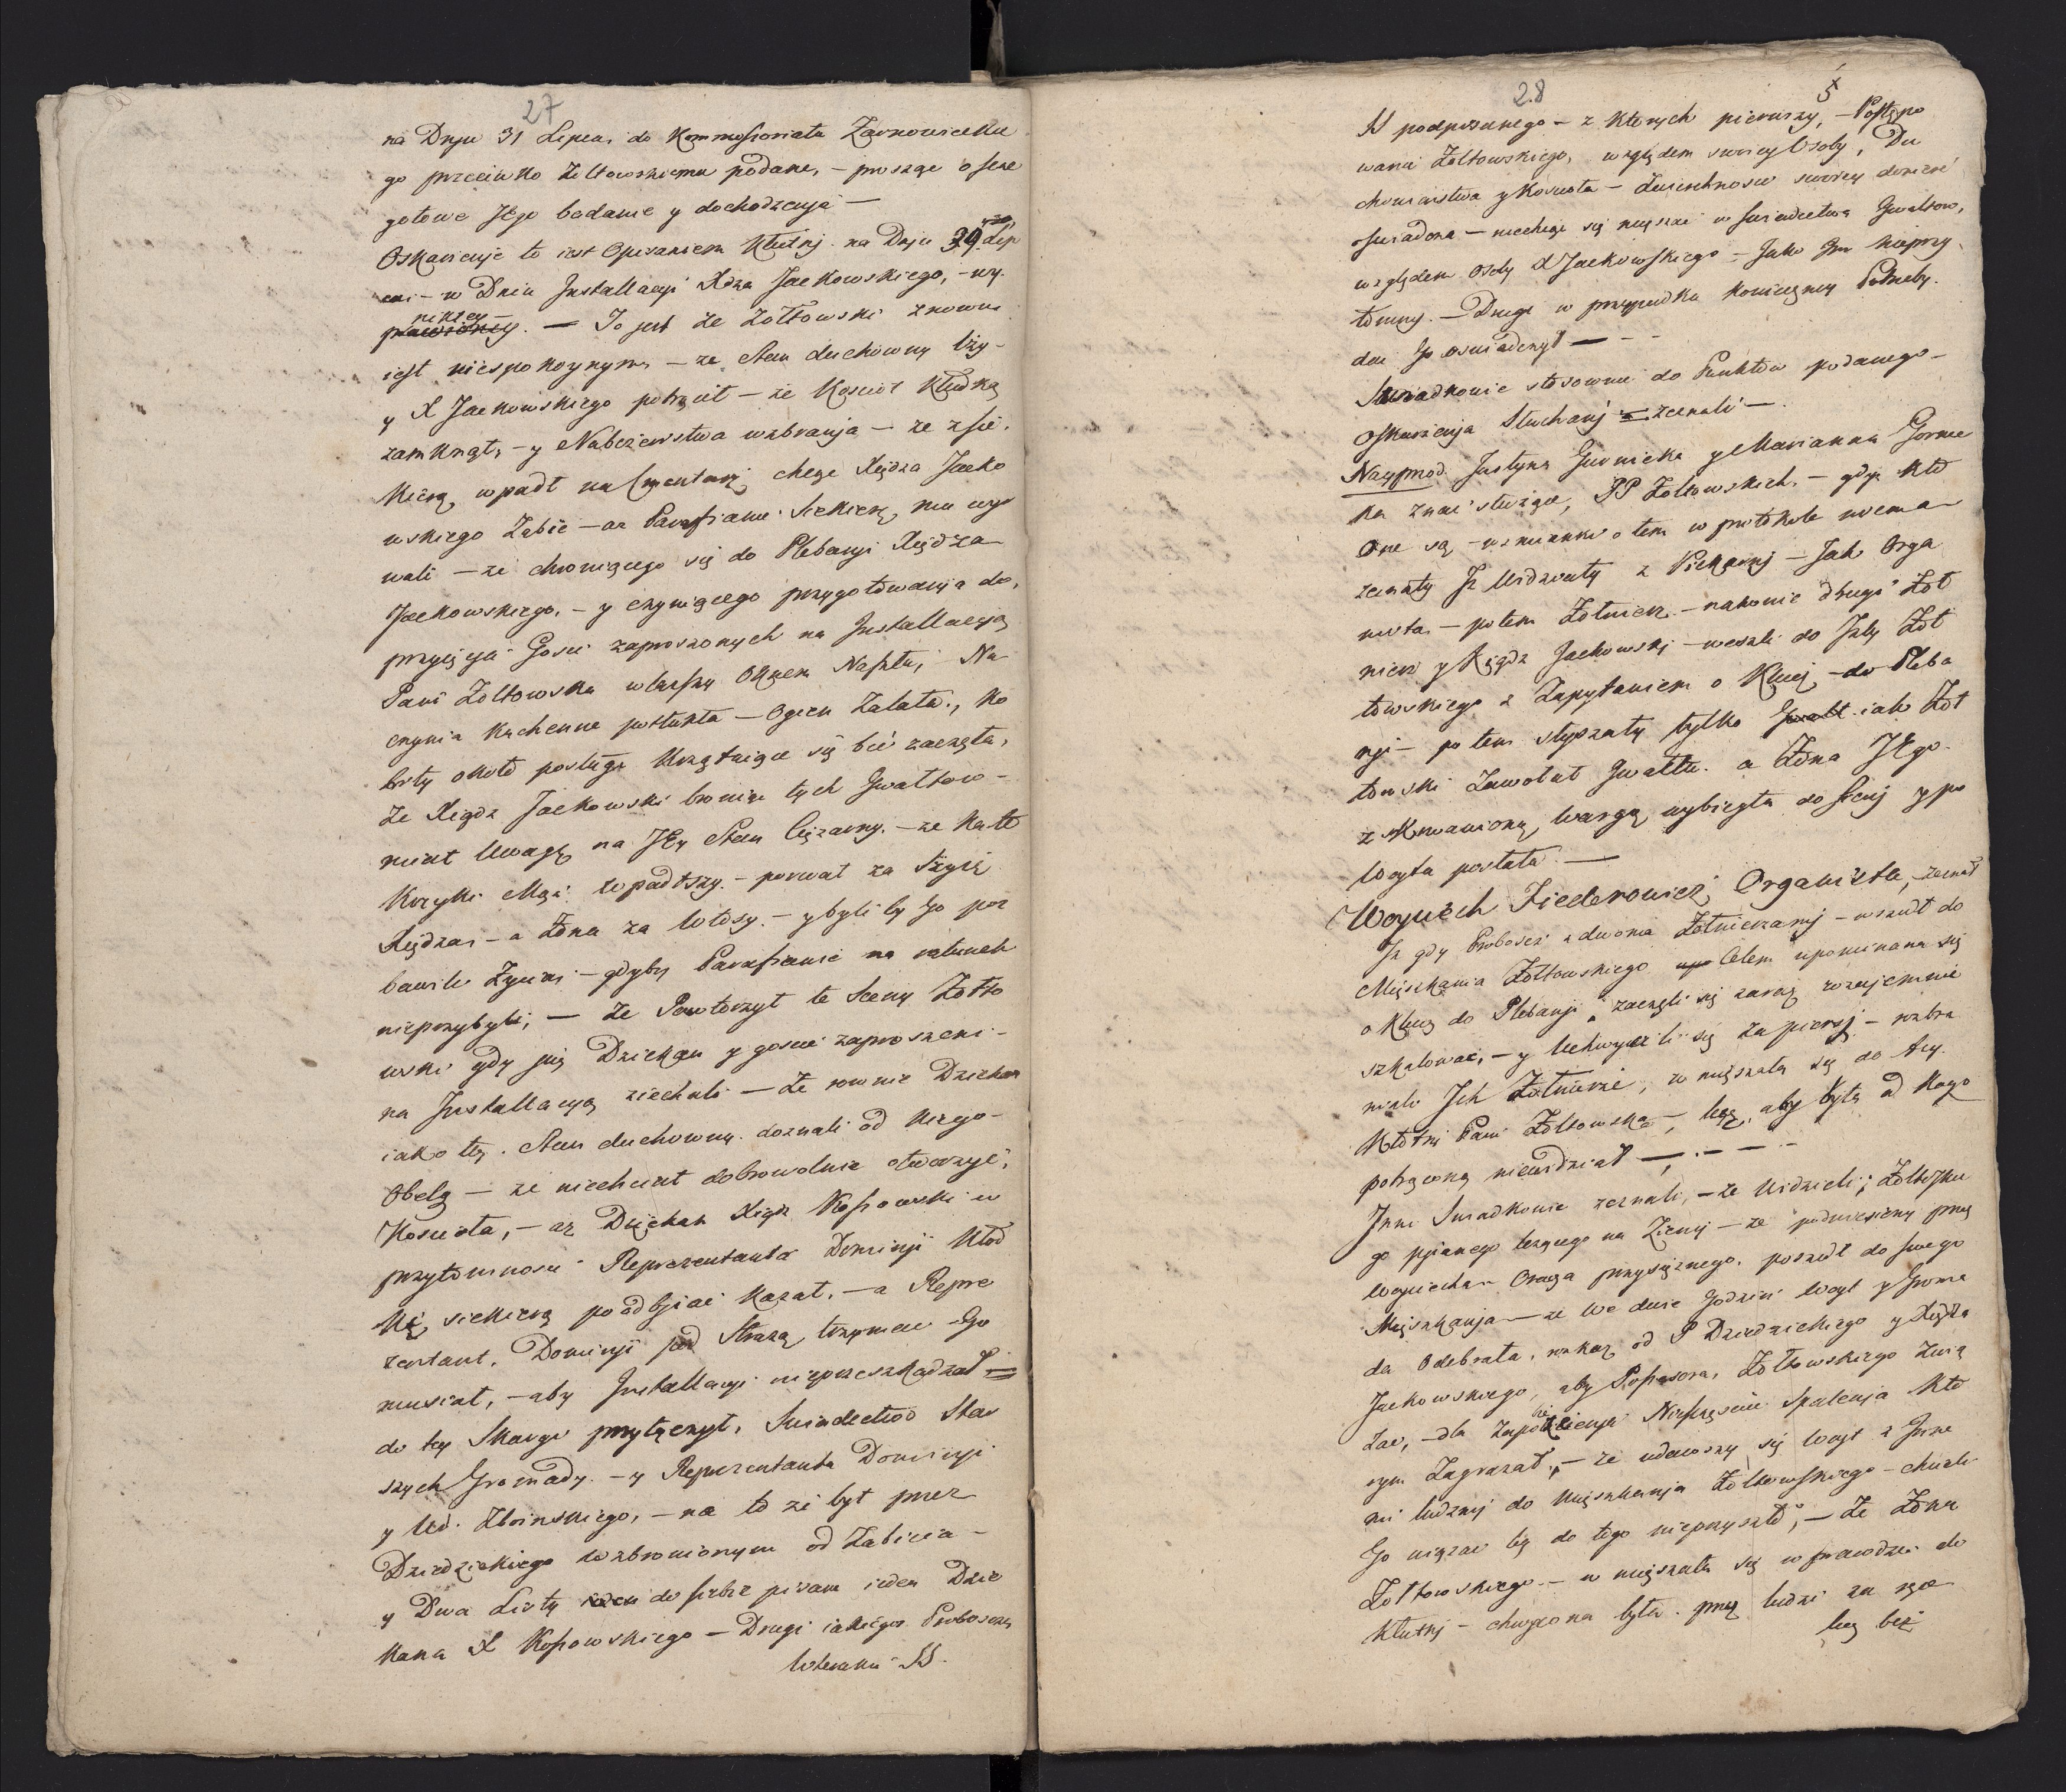 27
na Dnju 31 Lipca, do Kommissoriatu Żarnowieckie
go przeciwko Żołtowskiemu podane, – prosząc o
gotowe Jego badanie y dochodzenja –
Oskarżenje to iest Opisaniem Kłutnj na Dnju 29. Lip
ca – w Dniu Installacyi Xdza Jackowskiego, – wy-
nikłey –
To jest że Żołtowski znowu
iest niespokoynym – że Stan duchowny lży –
y X Jackowskiego potrącił – że Kosciół Kłudką
zamknął, – y Nabożenstwa wzbranja – że z sie-
kierą wpadł na Cmentarz chcąc Xiędza Jacko
wskiego Zabić – aż Parafianie Siekierę mu wyr
wali – że chroniącego się do Plebanji Xiędza
Jackowskiego, – y czyniącego przygotowanja do
przyięcia Gosci zaproszonych na Installacyją
Pani Żołtowska wlazłszy Oknem Naszła, Na
czynia Kuchenne potłukła – Ogien Zalała, Ko
biety około posługi Krzątaiące się bić zaczęła,
Że Xiądz Jackowski broniąc tych Gwałtow –
miał Uwagę na Jey Stan Ciężarny. – że na te
Krzyki Mąż wpadłszy – porwał za Szyię
Xiędza, – a Żona za Włosy. – y byliby Go poz
bawili Życia, – gdyby Parafianie na ratunek
nieprzybyli; – Że Powtorzył te Sceny Żołto
wski gdy już Dziekan y goscie zaproszeni –
na Installacyą ziechali – Że rownie Dziekan
iako też Stan duchowny doznali od Niego –
Obelg – że niechciał dobrowolnie otworzyć,
Kosciola, – aż Dziekan Xiądz Kossowski w
przytomnosci Reprezentanta Dominji Kłod
kę siekierą poodbjiac Kazał, – a Repre
zentant Dominji pod Strażą trzymać Go
musiał, – aby Installacyi nieprzeszkadzał =
do tey Skargi przyłączył, Swiadectwo Star
szych Gromady. – y Reprezentanta Dominji
y Ur. Zboinskiego, – na to że był przez
Dziedzickiego wzbronionym od Zabicia –
y Dwa Listy do siebie pisane ieden Dzie
kana X Kossowskiego – Drugi iakiegos Proboszcza
Literami SS.

28
5
SS podpisanego – z Ktorych pierwszy, – Postępo
wania Żołtowskiego, względem swoiey Osoby, Du
chowienstwa y Kosciola – Zwierzchnosci swoiey doniesć
oswiadcza – niechcąc się mięszać w swiadectwa Gwałtow,
względem Osoby X Jackowskiego – Jako Im nieprzy-
tomny. – Drugi w przypadku Konieczney Potrzeby.
dać Go oswiadczył – – –
Swiadkowie stosownie do Punktow podanego –
Oskarżenja Słuchanj = zeznali –
Nayprzod. Justyna Gurnicka y Marianna Gornic
ka znać służące, PP Żołtowskich – gdyż Kto
One są – wzmianki o tem w protokole niema –
zeznały Iż Widziały z Piekarnj – Jak Orga
nista – potem Żołnierz – nakoniec drugi Żoł
nierz y Xiądz Jackowskj – weszli do Izby Żoł
towskiego z Zapytaniem o Klucz – do Pleba
nji – po tem słyszały tylko iak Żoł
towski Zawołał Gwałtu. a Żona Jego
z skrwawioną wargą wybiegła do sieni y po
Woyta posłała –
Woyciech Fiederowicz Organista, – zeznał
Iż gdy Proboszcz z dwoma Żołnierzamj – wszedł do
Mięszkania Żołtowskiego Celem upominana się
o Klucz do Plebanji, zaczęli się zaraz wzajemnie
szkalować, – y Uchwycili się za piersj – rozbra
niali Ich Żołnierze, wmięszała się do tey
Kłotni Pani Żołtowska, – lecz, aby była od Kogo
potrąconą niewidział – . – – –
Inni Swiadkowie zeznali, – że Widzieli, Żołtowskie
go pjianego leżącego na Ziemj – że podniesiony przez
Woyciecha przysiężnego, poszedł do swego
Mięszkanja – że We dwie Godzinj Woyt y Groma
da Odebrała, rozkaz od P Dziedzickiego y Xiędza
Jackowskiego, aby Possessora, Żołtowskiego Zwią
zać, – dla Zapobieżenja Nieszczęscia Spalenja Kto
rym Zagrażał, – że udawszy się Woyt z Inne
mi ludzmj do Mięszkanja Żołtowskiego – chcieli
Go wiązać lecz do tego nieprzyszło, – Że Żona
Żołtowskiego – wmięszała się wprawdzie do
Kłutnj – chwycona była przez ludzi za ręce
lecz bez